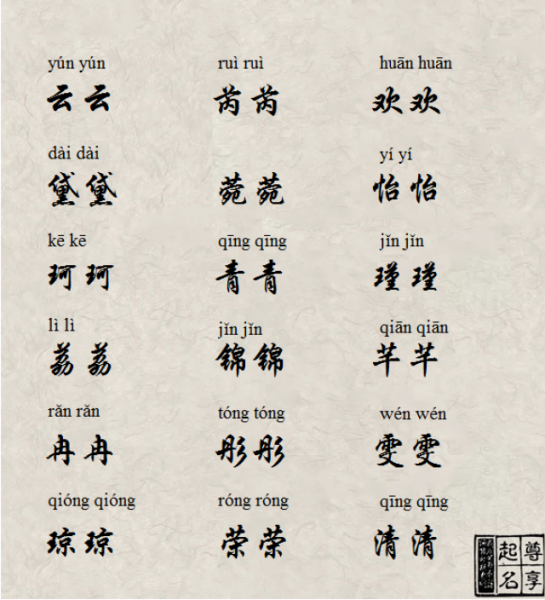 yún yún ruì ruì huān huān
云云 芮芮 欢欢
dài dài yí yí
黛黛 菀菀 怡怡
kē kē qīng qīng jǐn jǐn
珂珂 青青 瑾瑾
lì lì jǐn jǐn qiān qiān
荔荔 锦锦 芊芊
rǎn rǎn tóng tóng wén wén
冉冉 彤彤 雯雯
qióng qióng róng róng qīng qīng
琼琼 荣荣 清清
尊享
起名